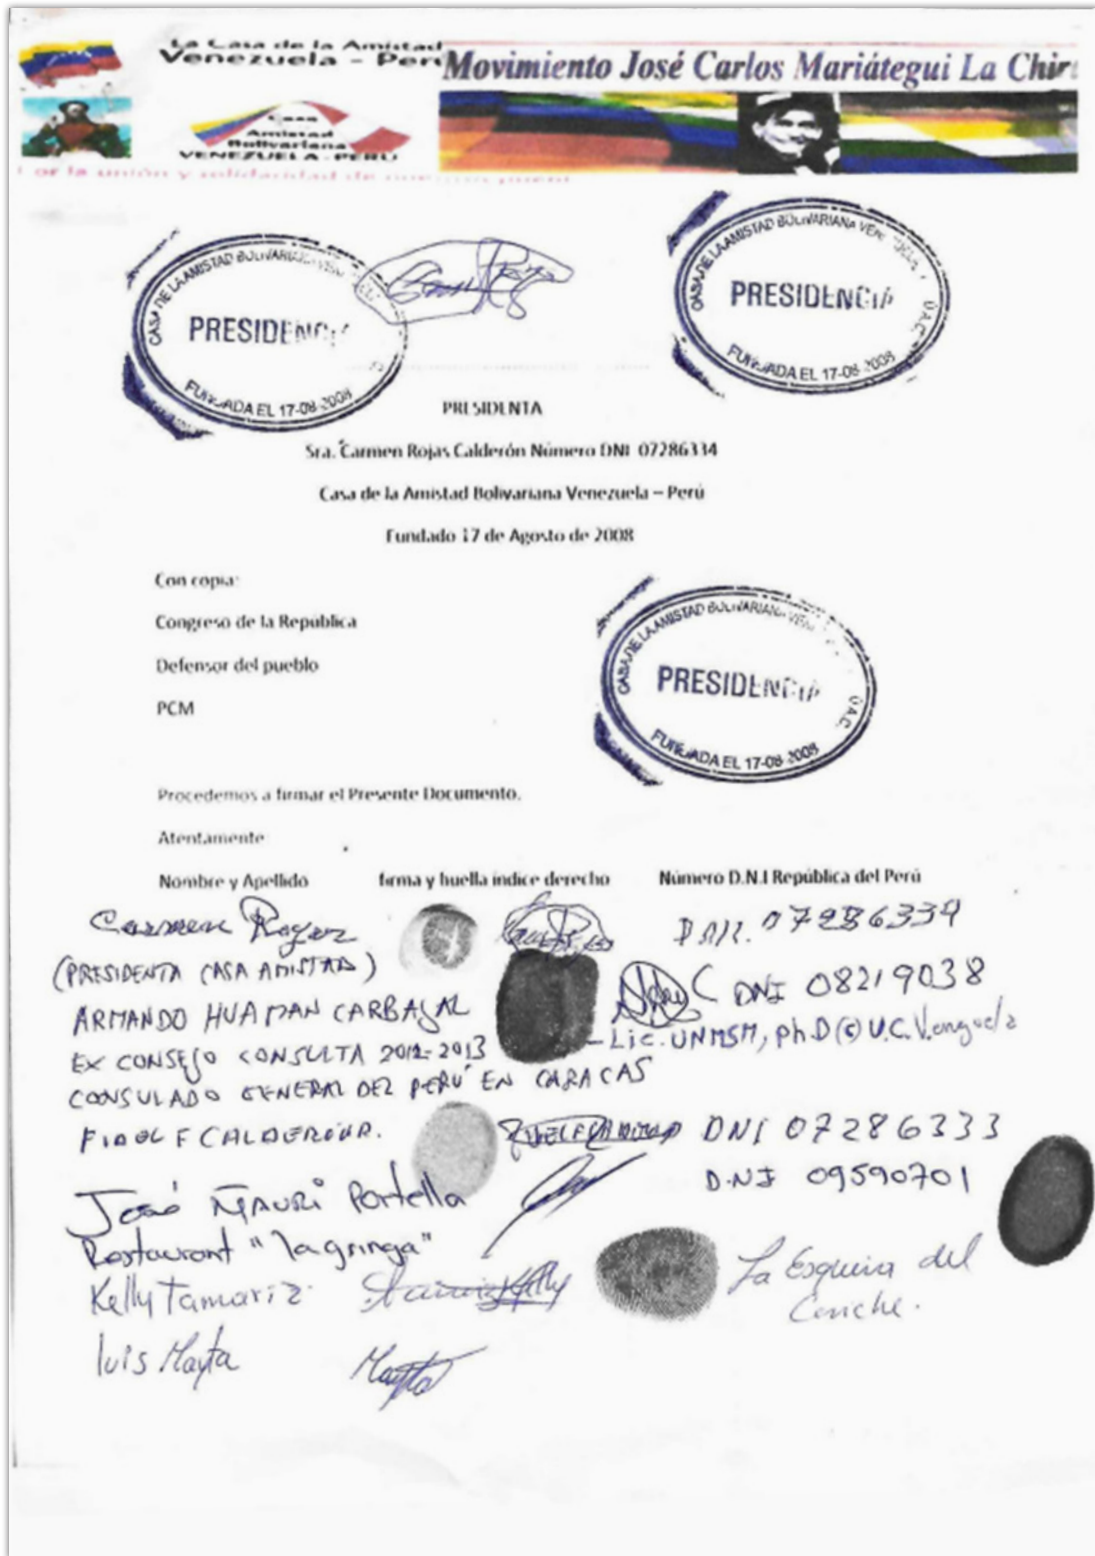 La Casa de la Amistad
Venezuela - Perú
Movimiento José Carlos Mariátegui La Chir
Casa
Amistad
Bolivariana
VENEZUELA - PERU
or la unión y solidaridad de
CASA DE LA AMISTAD BOLIVARIANA
PRESIDENCIA
FUNDADA EL 17-08-2008
CASA DE LA AMISTAD BOLIVARIANA VENEZUELA
PRESIDENCIA
FUNDADA EL 17-08-2008
PRESIDENTA
Sra. Carmen Rojas Calderón Número DNI 07286334
Casa de la Amistad Bolivariana Venezuela – Perú
Fundado 17 de Agosto de 2008
Con copia:
Congreso de la República
Defensor del pueblo
PCM
CASA DE LA AMISTAD BOLIVARIANA
PRESIDENCIA
FUNDADA EL 17-08-2008
Procedemos a firmar el Presente Documento.
Atentamente
Nombre y Apellido firma y huella índice derecho Número D.N.I República del Perú
Carmen Rojas DNI. 07286334
(PRESIDENTA CASA AMISTAD)
ARMANDO HUAMAN CARBAJAL DNI 08219038
Lic. UNMSM, Ph.D (c) U.C. Venezuela
EX CONSEJO CONSULTA 2012-2013
CONSULADO GENERAL DEL PERÚ EN CARACAS
FIDEL F CALDERON R. DNI 07286333
José ÑAURI Portella D.N.I 09590701
Restaurant "la gringa"
Kelly Tamariz La Esquina del
Ceviche.
luis Mayta Mayta